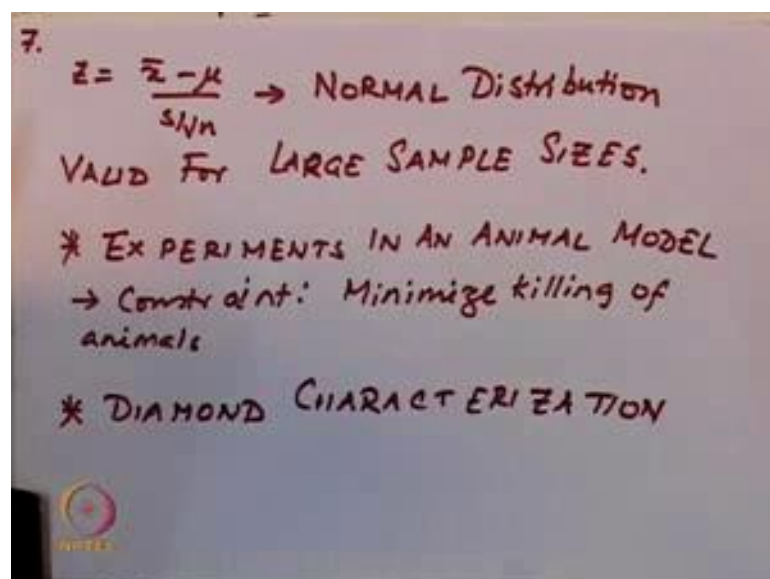 7.
z = x̄ - μ / s/√n → NORMAL Distribution
VALID For LARGE SAMPLE SIZES.
* EXPERIMENTS IN AN ANIMAL MODEL
→ Constraint: Minimize killing of
animals
* DIAMOND CHARACTERIZATION
NPTEL